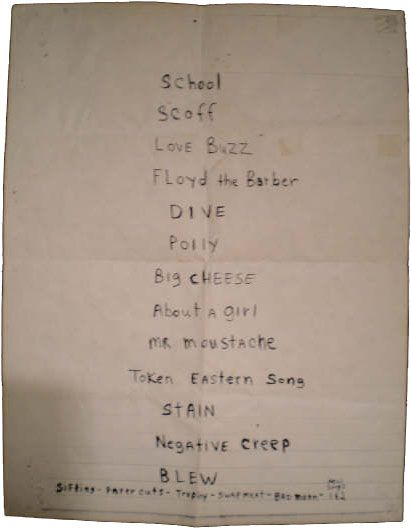 School
Scoff
LOVE BUZZ
FLoyd the Barber
DIVE
Polly
Big CHEESE
About A girl
MR MOUSTAcHe
Token Eastern Song
STAIN
Negative creep
BLEW
Sifting - Paper cuts - Trophy - SWAP MEAT - BAD MOON -